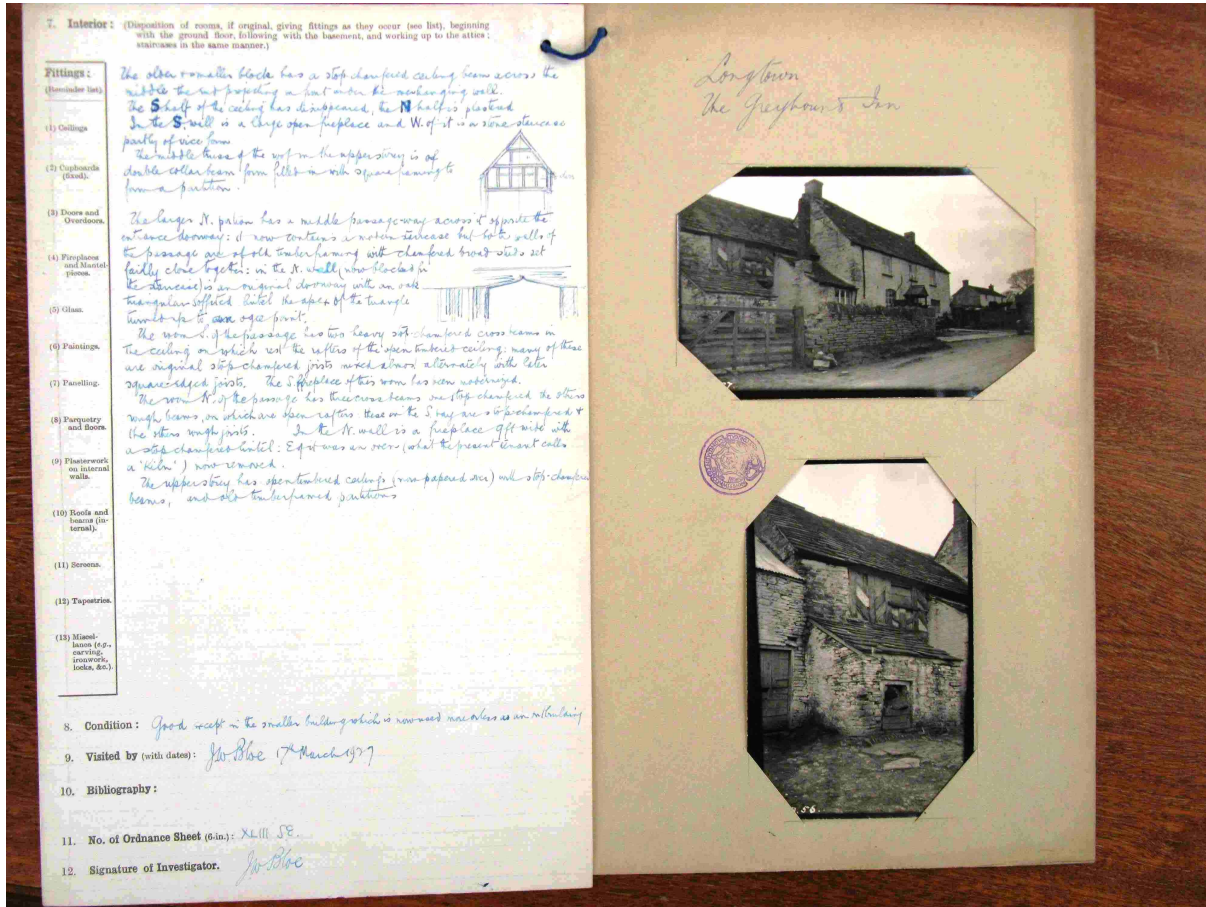 7. Interior: (Disposition of rooms, if original, giving fittings as they occur (see list), beginning
with the ground floor, following with the basement, and working up to the attics;
staircases in the same manner.)
Fittings:
(Reminder list).
(1) Ceilings
(2) Cupboards
(fixed).
(3) Doors and
Overdoors.
(4) Fireplaces
and Mantel-
pieces.
(5) Glass.
(6) Paintings.
(7) Panelling.
(8) Parquetry
and floors.
(9) Plasterwork
on internal
walls.
(10) Roofs and
beams (in-
ternal).
(11) Screens.
(12) Tapestries.
(13) Miscel-
lanea (e.g.,
carving,
ironwork,
locks, &c.).
The older & smaller block has a stop chamfered ceiling beams across the
middle the end projecting a foot under the overhanging wall.
The S half of the ceiling has disappeared, the N half is plastered
In the S. wall is a large open fireplace and W. of it is a stone staircase
partly of vice form
The middle truss of the roof in the upper storey is of
double collar beam form filled in with square framing to
form a partition.
The larger N. portion has a middle passage-way across it opposite the
entrance doorway: it now contains a modern staircase but both walls of
the passage are of old timber framing with chamfered broad studs set
fairly close together: in the N. wall (now blocked by
the staircase) is an original doorway with an oak
triangular soffited lintel the apex of the triangle
turned up to an ogee point.
The room S. of the passage has two heavy stop-chamfered cross beams in
the ceiling on which rest the rafters of the open timbered ceiling: many of these
are original stop chamfered joists mixed almost alternately with later
square edged joists. The S. fireplace of this room has been modernized.
The room N. of the passage has three cross beams one stop chamfered the others
rough beams, on which are open rafters these in the S. bay are stop chamfered &
the others rough joists. In the N. wall is a fireplace 9ft wide with
a stop chamfered lintel: E of it was an oven (what the present tenant calls
a 'Kiln') now removed.
The upper storey has open timbered ceilings (now papered over) with stop-chamfered
beams, and old timber framed partitions
8. Condition: Good except in the smaller building which is now used more or less as an outbuilding
9. Visited by (with dates): J W Bloe 17th March 1927
10. Bibliography:
11. No. of Ordnance Sheet (6-in.): XLIII SE.
12. Signature of Investigator. J W Bloe
Longtown
The Greyhound Inn
56.